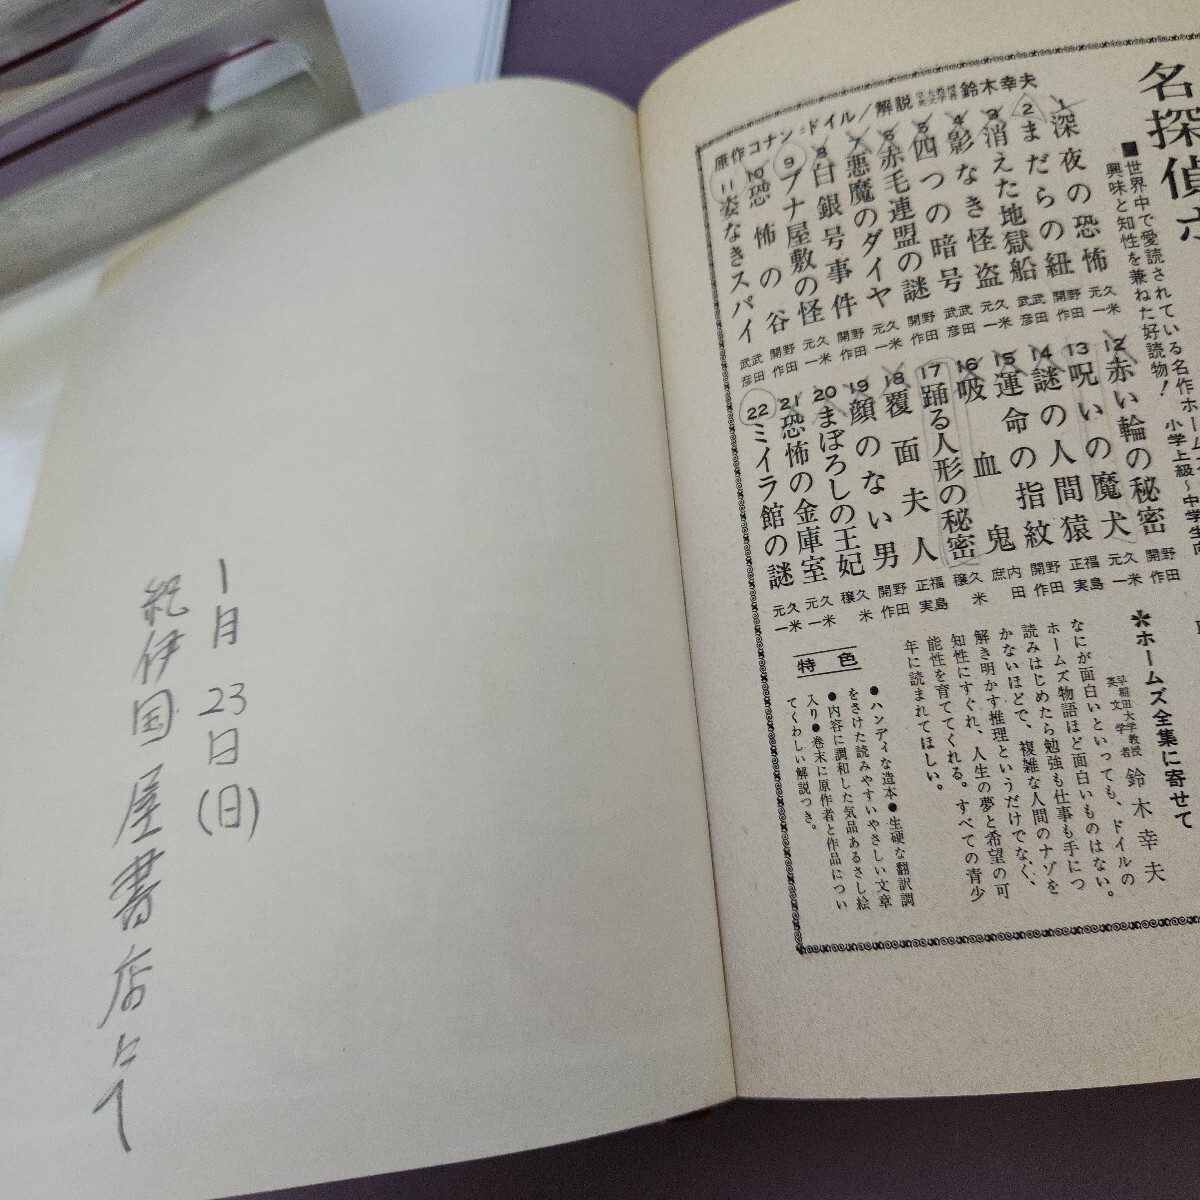 1月23日(日)
紀伊国屋書店にて
名探偵ホ
■世界中で愛読されている名作ホームズ
興味と知性を兼ねた好読物!
小学上級~中学生向
原作コナン=ドイル/解説 鈴木幸夫
1 深夜の恐怖 久米元一
2 まだらの紐 野田開作
3 消えた地獄船 武田武彦
4 影なき怪盗 久米元一
5 四つの暗号 武田武彦
6 赤毛連盟の謎 野田開作
7 悪魔のダイヤ 久米元一
8 白銀号事件 野田開作
9 ブナ屋敷の怪 久米元一
10 恐怖の谷 野田開作
11 姿なきスパイ 武田武彦
12 赤い輪の秘密 野田開作
13 呪いの魔犬 久米元一
14 謎の人間猿 福島正実
15 運命の指紋 野田開作
16 吸血鬼 内田庶
17 踊る人形の秘密 久米穣
18 覆面夫人 福島正実
19 顔のない男 野田開作
20 まぼろしの王妃 久米穣
21 恐怖の金庫室 久米元一
22 ミイラ館の謎 久米元一
＊ホームズ全集に寄せて
早稲田大学教授
英文学者
鈴木幸夫
なにが面白いといっても、ドイルの
ホームズ物語ほど面白いものはない。
読みはじめたら勉強も仕事も手につ
かないほどで、複雑な人間のナゾを
解き明かす推理というだけでなく、
知性にすぐれ、人生の夢と希望の可
能性を育ててくれる。すべての青少
年に読まれてほしい。
特色
●ハンディな造本●生硬な翻訳調
をさけた読みやすいやさしい文章
●内容に調和した気品あるさし絵
入り●巻末に原作者と作品につい
てくわしい解説つき。